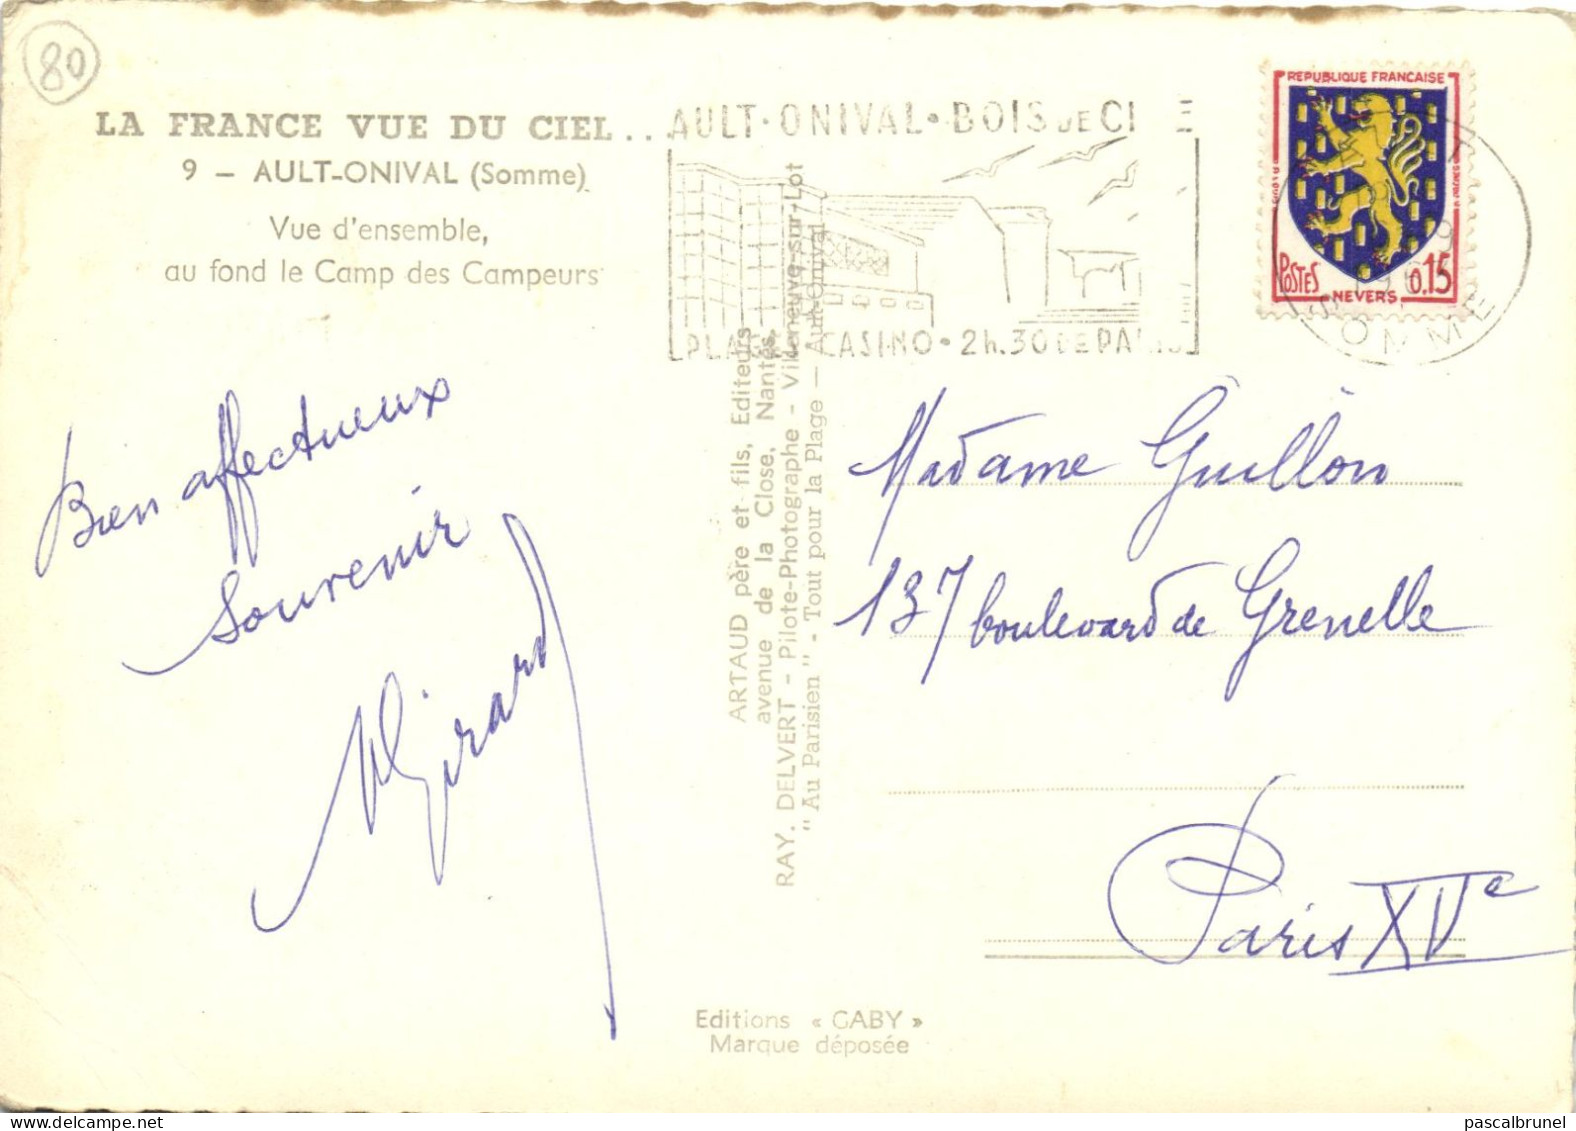 80
LA FRANCE VUE DU CIEL..
9 - AULT-ONIVAL (Somme)
Vue d'ensemble,
au fond le Camp des Campeurs
AULT·ONIVAL·BOIS DE CI E
PLAGE CASINO·2h.30 DE PARIS
REPUBLIQUE FRANCAISE
POSTES
0.15
NEVERS
SOMME
Bien affectueux
Souvenir
Girard
ARTAUD père et fils, Editeurs
avenue de la Close, Nantes
RAY. DELVERT - Pilote-Photographe - Villeneuve-sur-Lot
"Au Parisien" - Tout pour la Plage — Ault-Onival
Madame Guillon
137 boulevard de Grenelle
Paris XVe
Editions « GABY »
Marque déposée
pascalbrunel